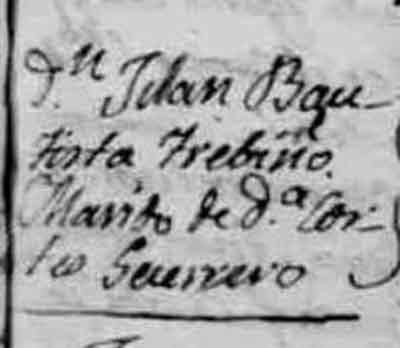 D.ⁿ Juan Bau-
tista Trebiño.
Marido de d.ª Cor-
Guerrero